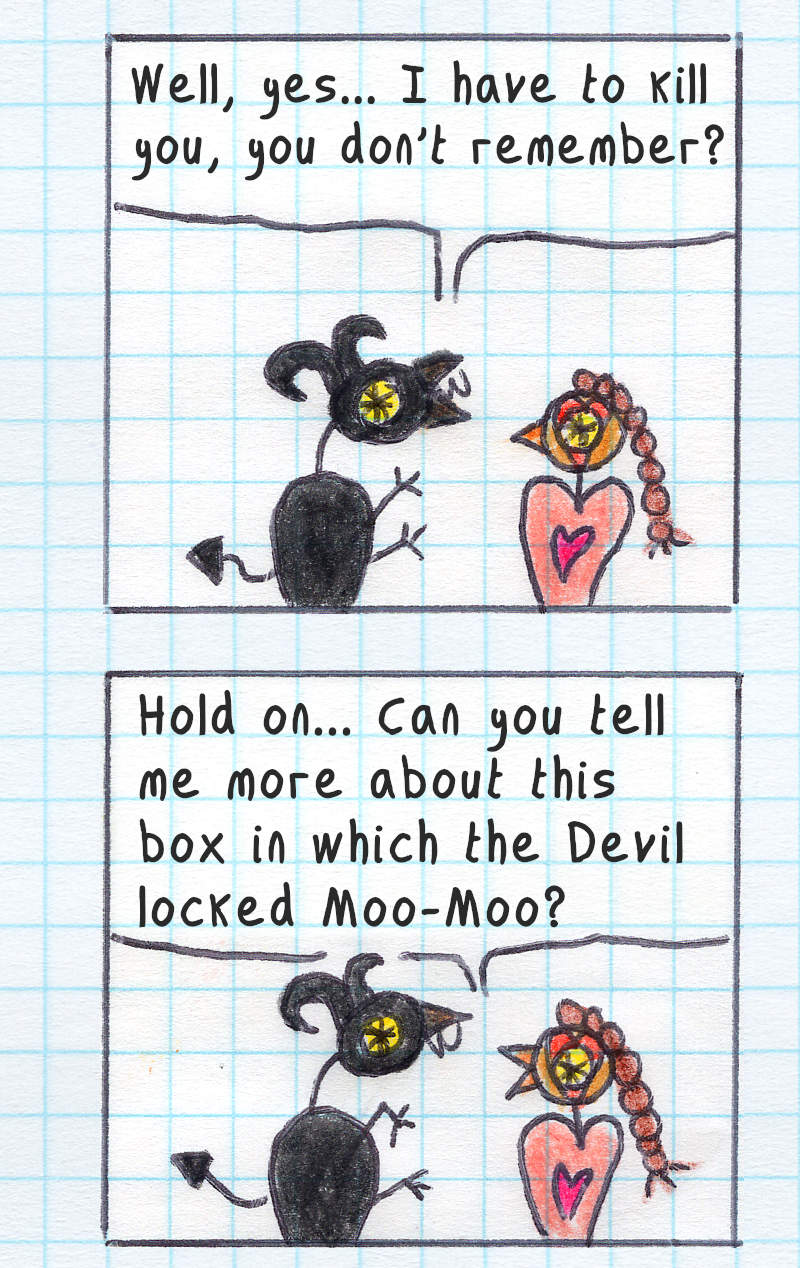 Well, yes... I have to kill
you, you don't remember?
Hold on... Can you tell
me more about this
box in which the Devil
locked Moo-Moo?